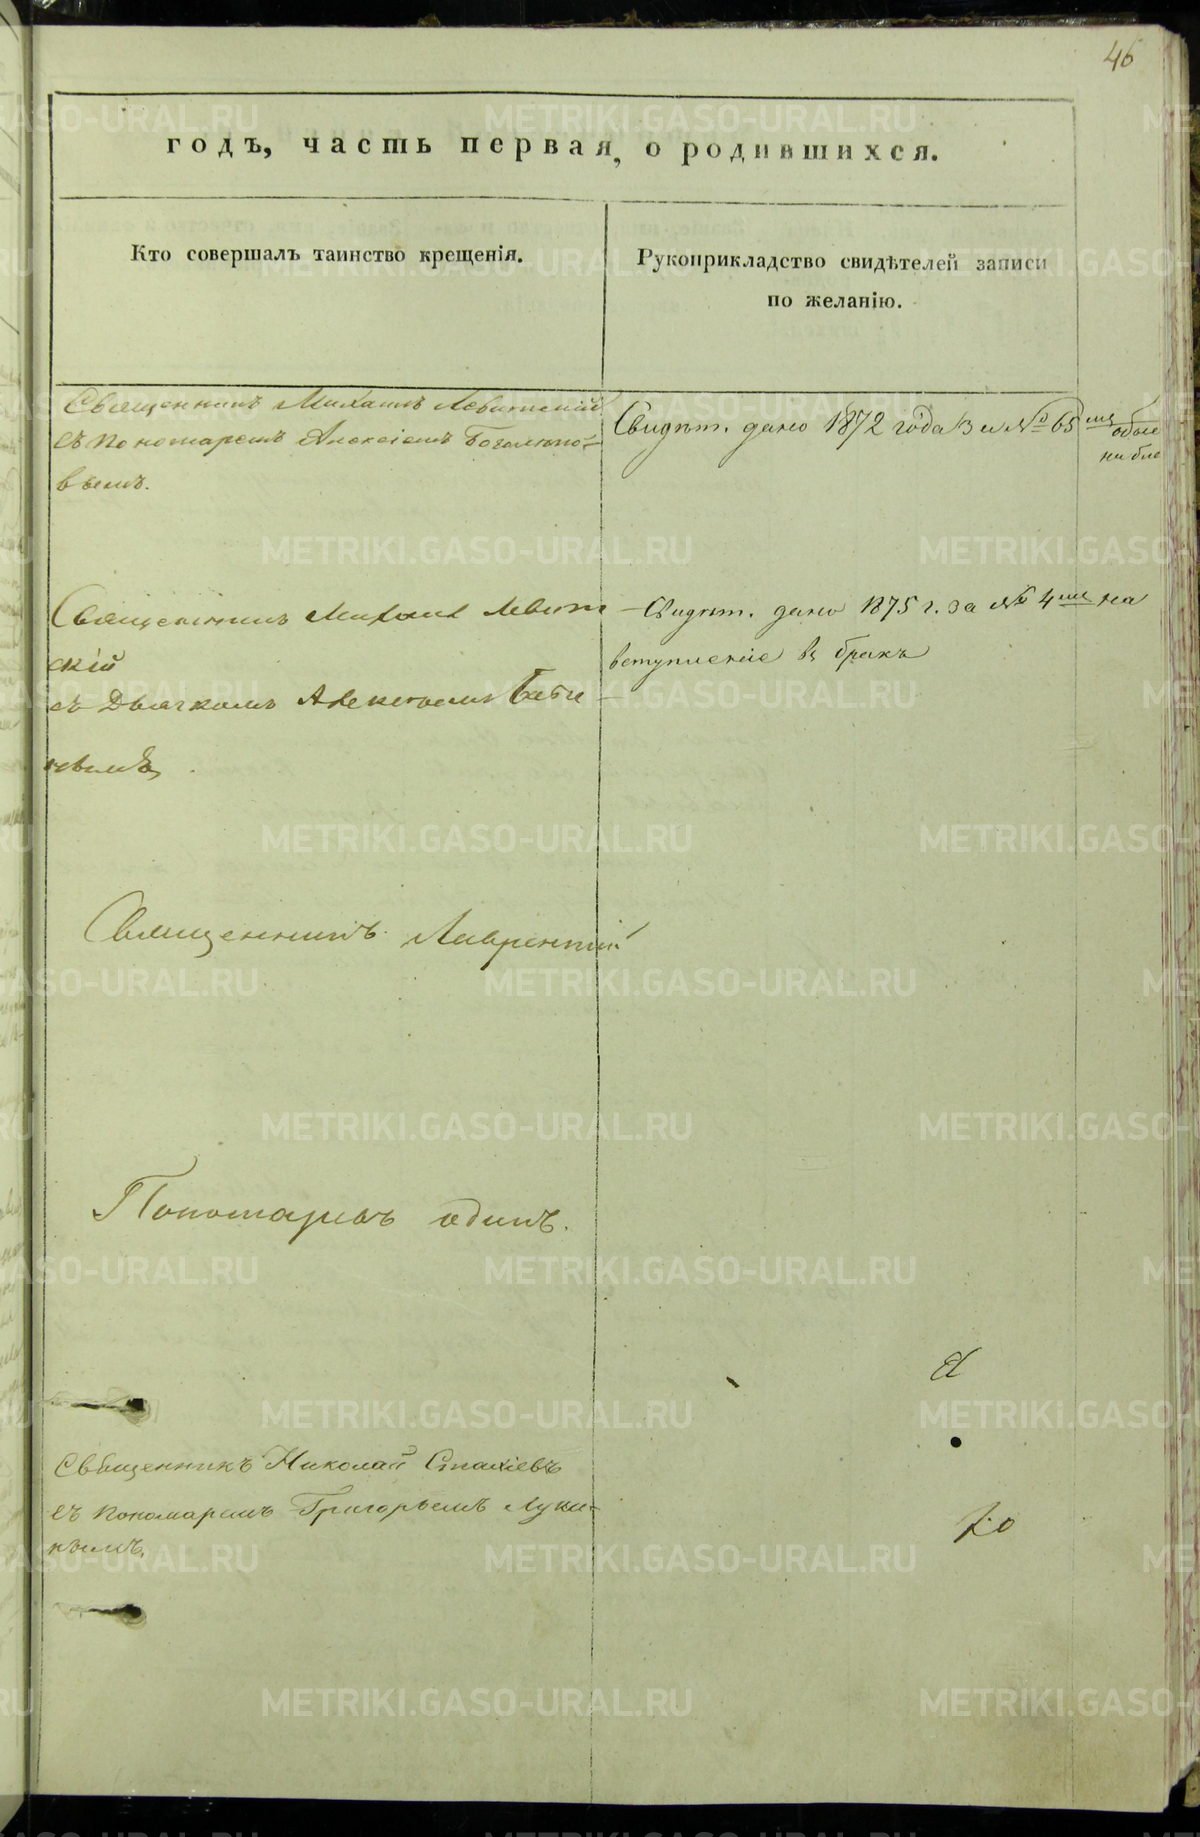 46
годъ, часть первая, о родившихся.
Кто совершалъ таинство крещенія.
Рукоприкладство свидѣтелей записи
по желанію.
Священникъ Михаилъ Левитскій
съ Пономаремъ Алексѣемъ Боголюпо-
вымъ.
Свидѣт. дано 1872 года за № 65
Священникъ Михаил Левит
скій
съ Дьячкомъ Алексѣемъ Баби
новымъ
Свидѣт. дано 1875 г. за № 4 на
вступленіе въ бракъ
Священникъ Лаврентій
Пономарь одинъ.
Священникъ Николай Стахіевъ
съ пономаремъ Григорьемъ Луки-
нымъ.
METRIKI.GASO-URAL.RU